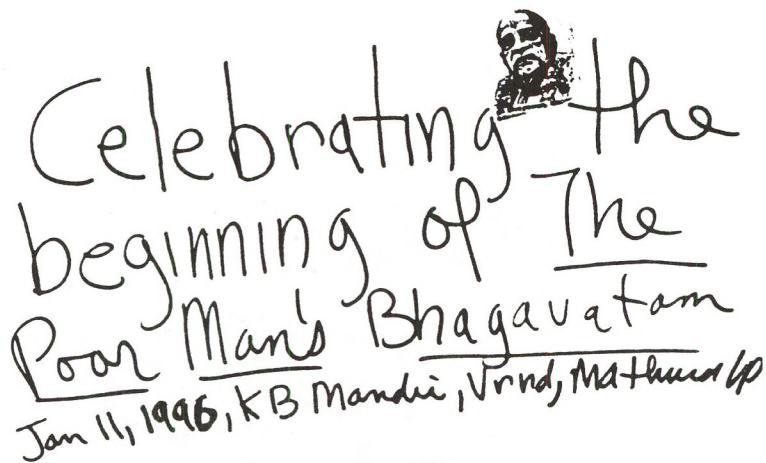 Celebrating the
beginning of The
Poor Man's Bhagavatam
Jan 11, 1996, KB Mandir, Vrnd, Mathura UP